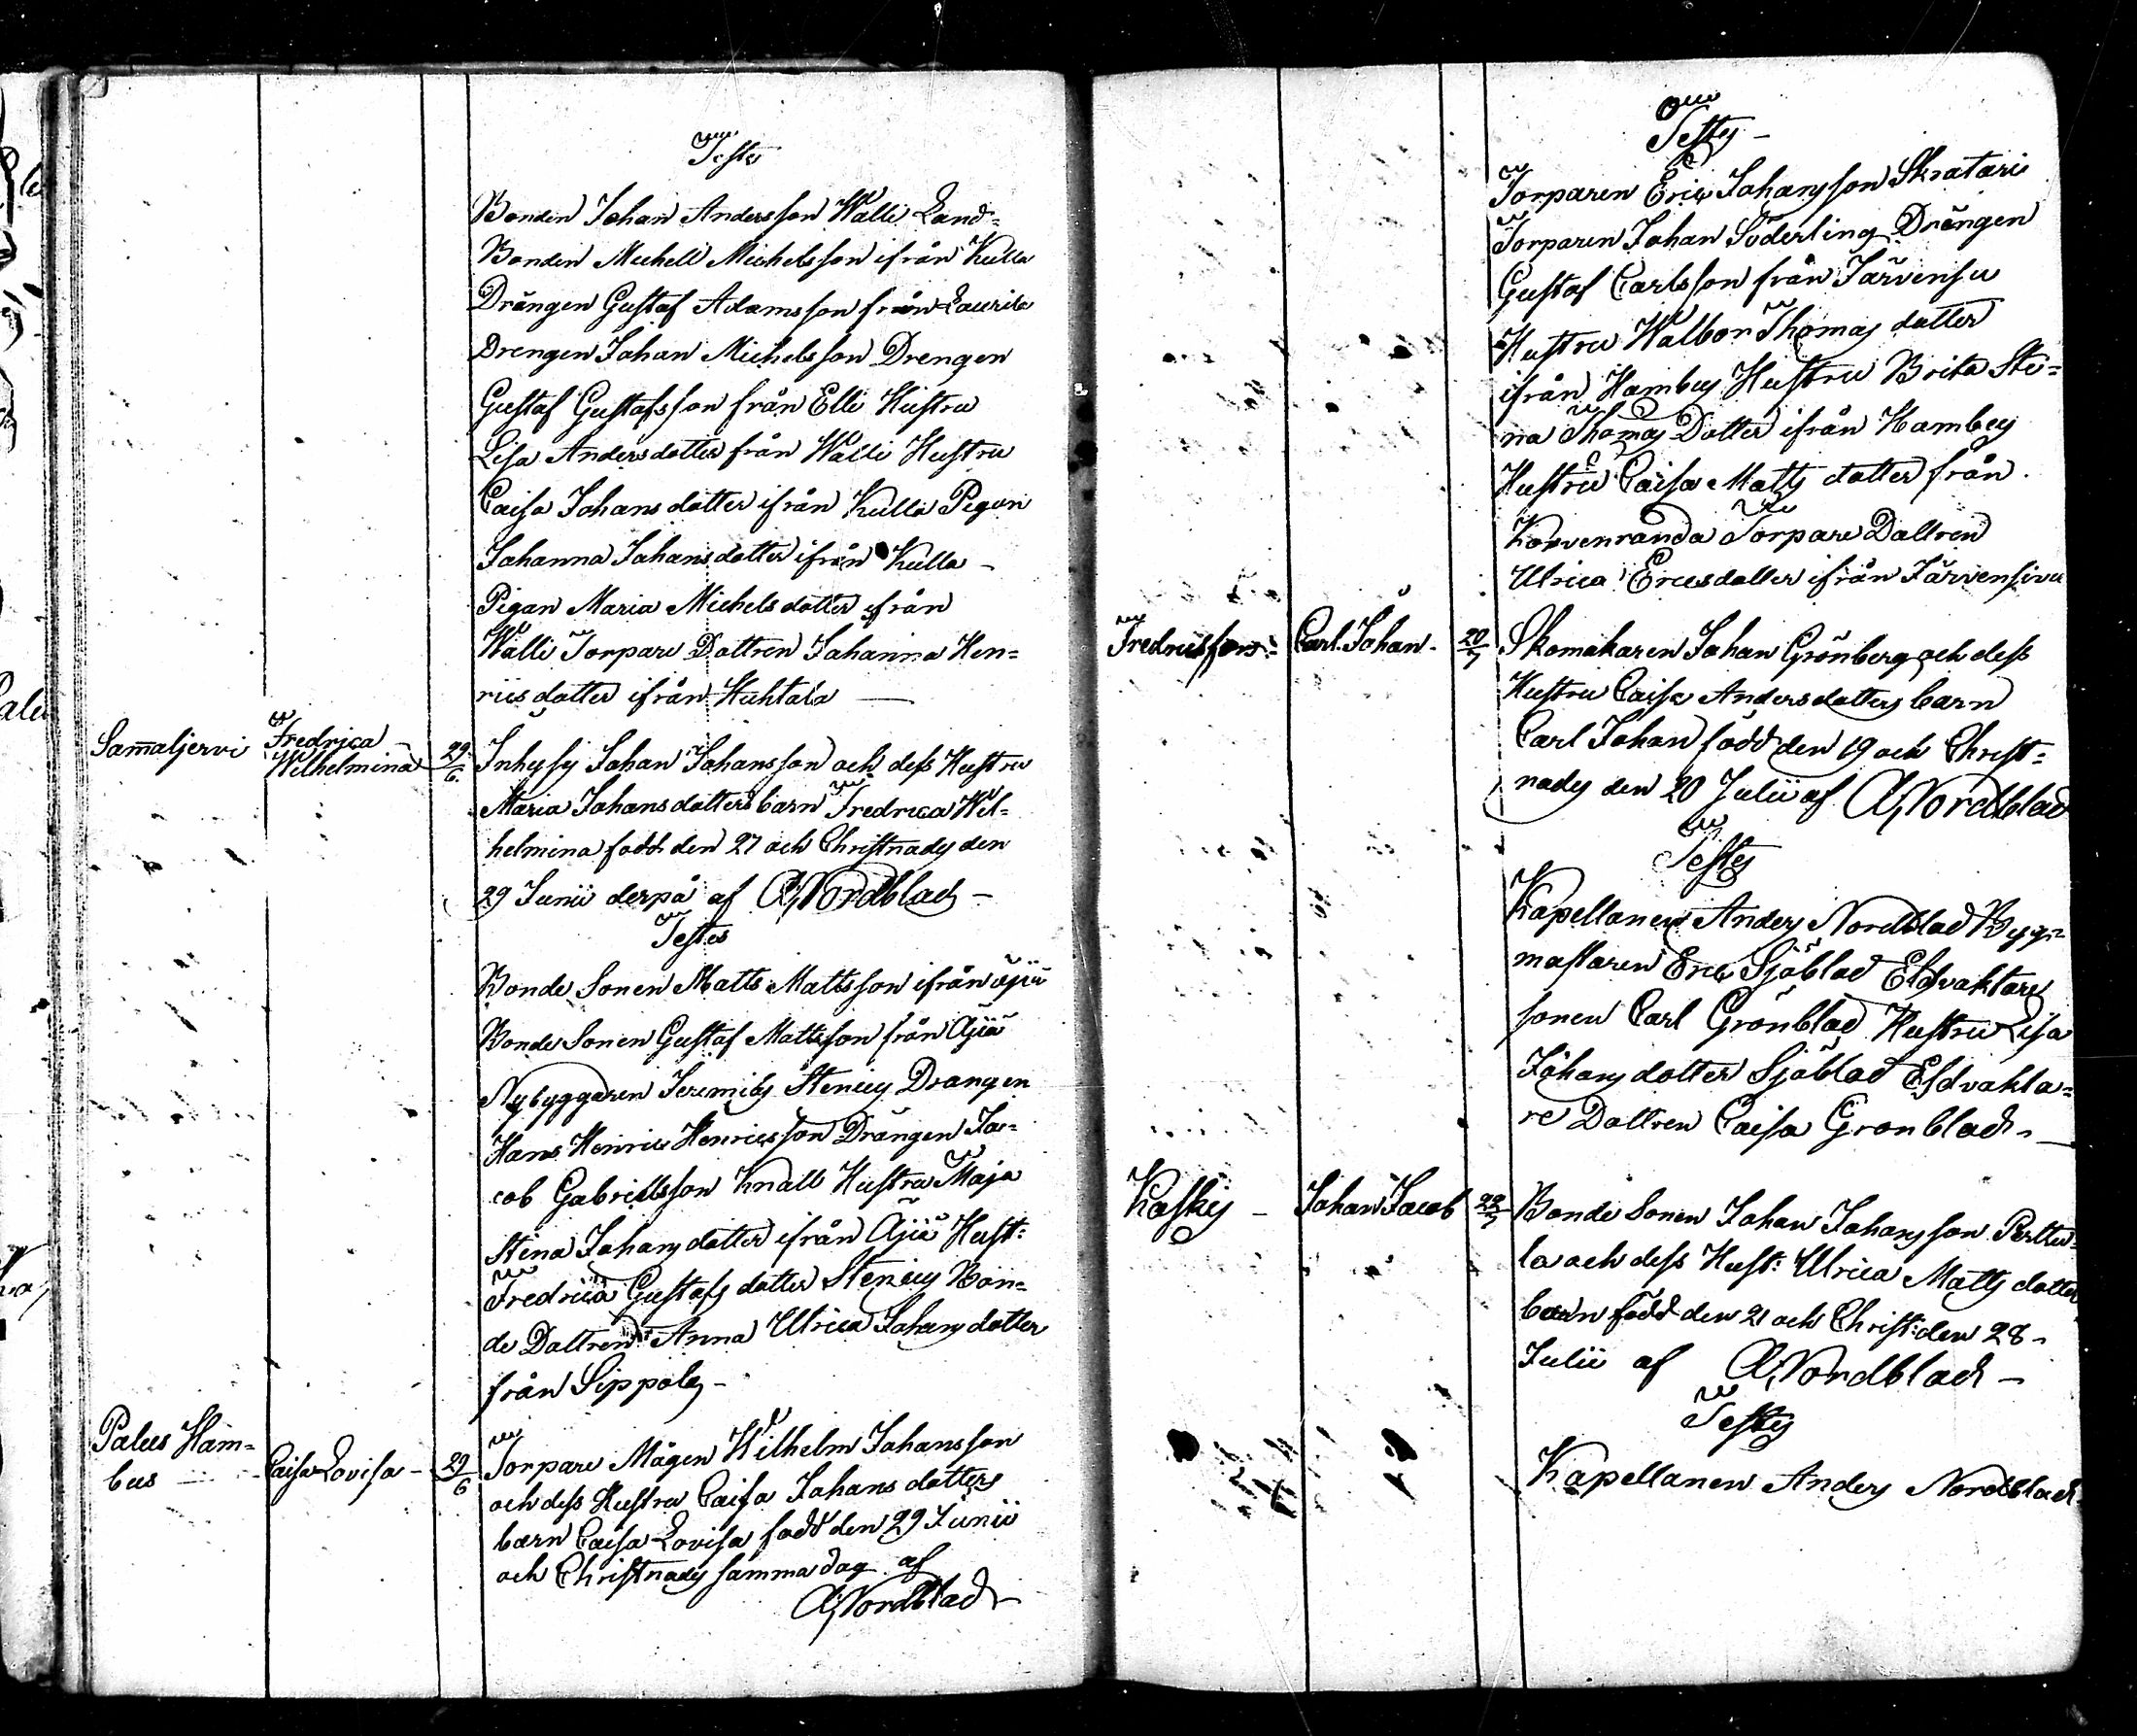 Testes
Bonden Johan Andersson Walli Land=
Bonden Michell Michelsson ifrån Kulla
Drängen Gustaf Adamsson från Laurila
Drengen Johan Michelsson Drengen
Gustaf Gustafsson från Elli Hustru
Lisa Andersdotter från Walli Hustru
Caisa Johansdotter ifrån Kulla Pigan
Johanna Johansdotter ifrån Kulla -
Pigan Maria Michelsdotter ifrån
Walli Torpare Dottren Johanna Hen=
ricsdotter ifrån Huhtala
Sam̄aljervi
Fredrica
Wilhelmina
29/6
Inhyses Johan Johansson och dess Hustru
Maria Johansdotters barn Fredrica Wil-
helmina född den 27 och Christnades den
29 Junii derpå af A, Nordblad -
Testes
Bonde Sonen Matts Mattsson ifrån Äjiä
Bonde Sonen Gustaf Mattsson från Äjiä
Nybyggaren Jeremias Stenius Drangen
Hans Henric Henricsson Drängen Ja-
cob Gabrielsson Knall Hustru Maja
Stina Johansdotter ifrån Äjiä Hust:
Fredrica Gustafsdotter Stenius Bon=
de Dottren Anna Ulrica Johansdotter
från Sippola -
Palus Ham=
bus
Caisa Lovisa - 29/6
Torpare Mågen Wilhelm Johansson
och dess Hustru Caisa Johansdotters
barn Caisa Lovisa född den 29 Junii
och Christnades samma dag af
A, Nordblad
Testes -
Torparen Eric Johansson Skratari
Torparen Johan Söderling Drängen
Gustaf Carlsson från Järvensu
Hustru Walbor Thomasdotter
ifrån Hambus Hustru Brita Sti=
na Thomas Dotter ifrån Hambus
Hustru Caisa Mattsdotter från
Korvenranda Torpare Dottren
Ulrica Ericsdotter ifrån Järvensivu
Fredricsfors: Carl Johan - 20/7
Skomakaren Johan Grönberg och dess
Hustru Caisa Andersdotters barn
Carl Johan född den 19 och Christ=
nades den 20 Julii af A, Nordblad
Testes
Kapellanen Anders Nordblad Byg=
mästaren Eric Sjöblad Eldvaktare
sonen Carl Grönblad Hustru Lisa
Johansdotter Sjöblad Eldvakta=
re Dottren Caisa Gronblad -
Koskis - Johan Jacob 28/7
Bonde Sonen Johan Johansson Perttu=
la och dess Hust: Ulrica Mattsdotter
barn född den 21 och Christ: den 28 -
Julii af A, Nordblad -
Testes
Kapellanen Anders Nordblad